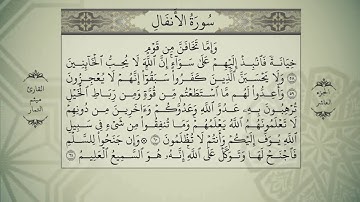 سُورَةُ الأَنفَالِ
وَإِمَّا تَخَافَنَّ مِن قَوْمٍ
خِيَانَةً فَانۢبِذْ إِلَيْهِمْ عَلَىٰ سَوَآءٍ إِنَّ ٱللَّهَ لَا يُحِبُّ ٱلْخَآئِنِينَ
٥٨ وَلَا يَحْسَبَنَّ ٱلَّذِينَ كَفَرُوا۟ سَبَقُوٓا۟ إِنَّهُمْ لَا يُعْجِزُونَ
٥٩ وَأَعِدُّوا۟ لَهُم مَّا ٱسْتَطَعْتُم مِّن قُوَّةٍ وَمِن رِّبَاطِ ٱلْخَيْلِ
تُرْهِبُونَ بِهِۦ عَدُوَّ ٱللَّهِ وَعَدُوَّكُمْ وَءَاخَرِينَ مِن دُونِهِمْ
لَا تَعْلَمُونَهُمُ ٱللَّهُ يَعْلَمُهُمْ وَمَا تُنفِقُوا۟ مِن شَىْءٍ فِى سَبِيلِ
ٱللَّهِ يُوَفَّ إِلَيْكُمْ وَأَنتُمْ لَا تُظْلَمُونَ ٦٠ وَإِن جَنَحُوا۟ لِلسَّلْمِ
فَٱجْنَحْ لَهَا وَتَوَكَّلْ عَلَى ٱللَّهِ إِنَّهُۥ هُوَ ٱلسَّمِيعُ ٱلْعَلِيمُ ٦١
الجزء
العاشر
القارئ
ميثم
التمار